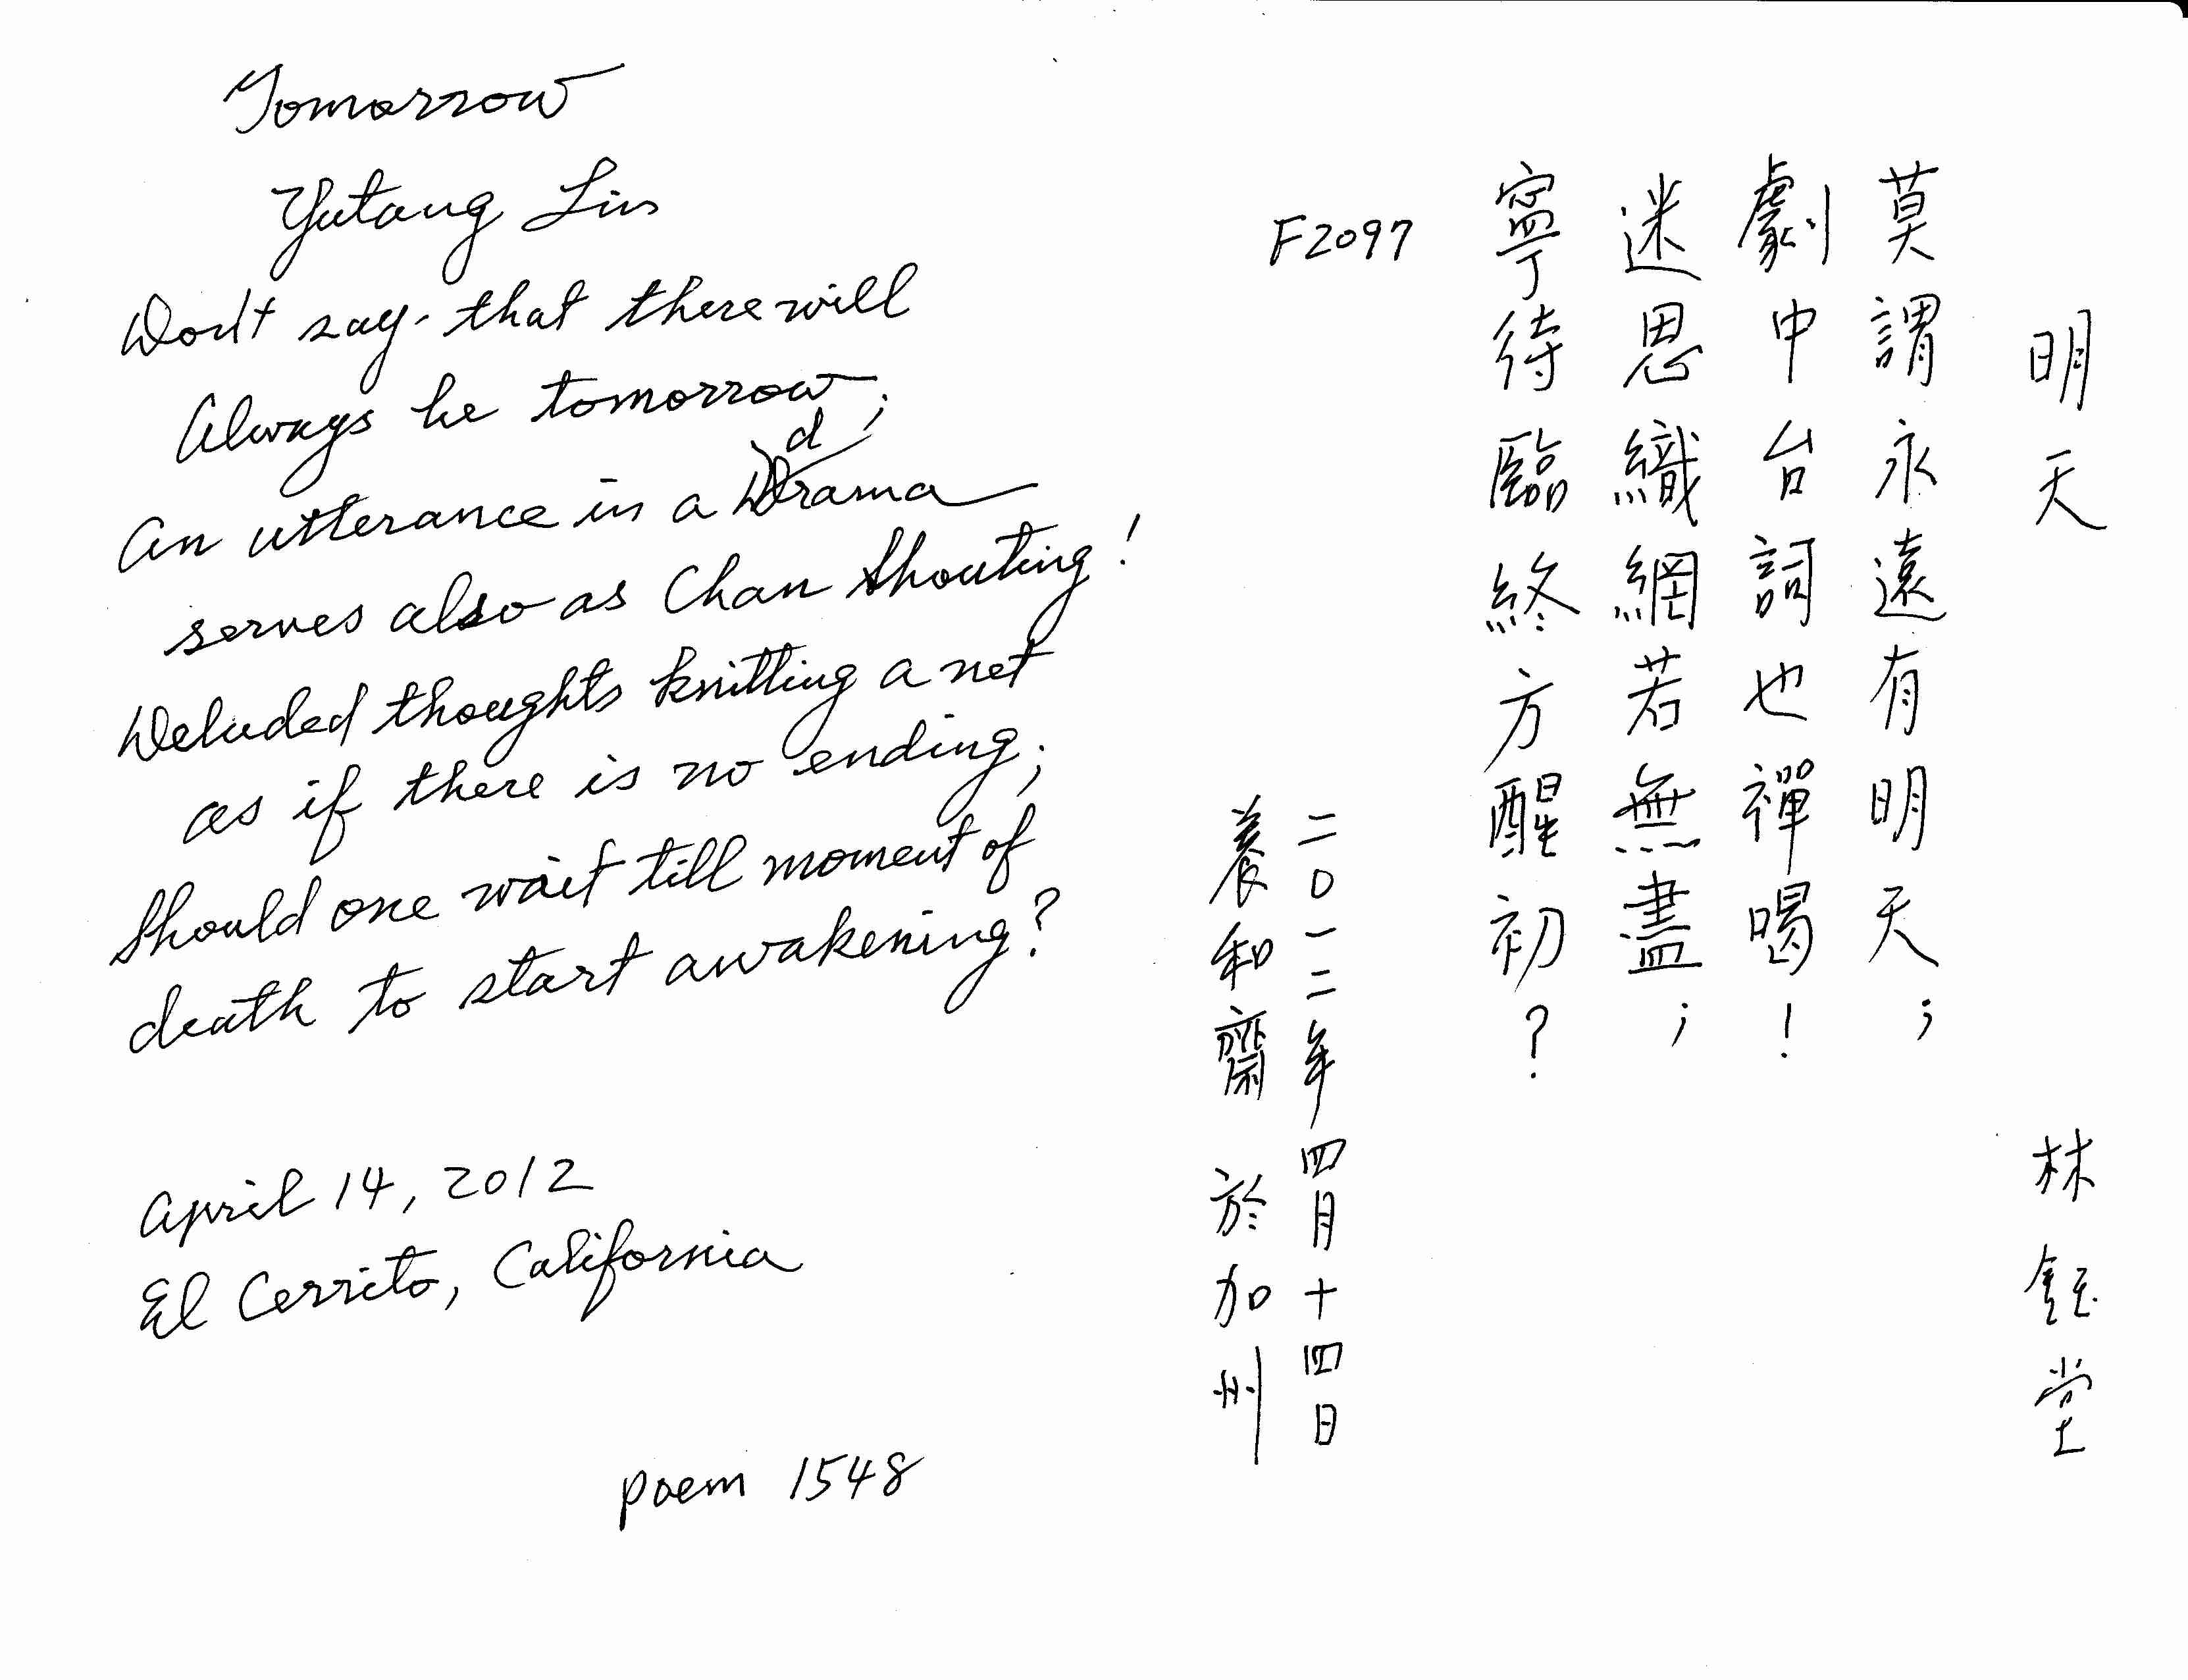 Tomorrow
Yutang Lin
Don't say that there will
Always be tomorrow;
An utterance in a drama
serves also as Chan shouting!
Deluded thoughts knitting a net
as if there is no ending;
Should one wait till moment of
death to start awakening?
April 14, 2012
El Cerrito, California
poem 1548
明天 林鈺堂
莫謂永遠有明天；
劇中台詞也禪喝！
迷思織網若無盡；
寧待臨終方醒初？
F2097
二〇一二年四月十四日
養和齋 於加州